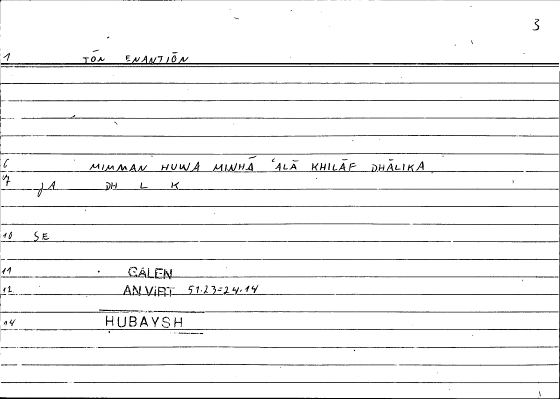 3
1 TŌN ENANTIŌN
6 MIMMAN HUWA MINHĀ ʿALĀ KHILĀF DHĀLIKA
7 JA DH L K
10 SE
11 GALEN
12 AN.VIRT 51.23=24.14
14 HUBAYSH